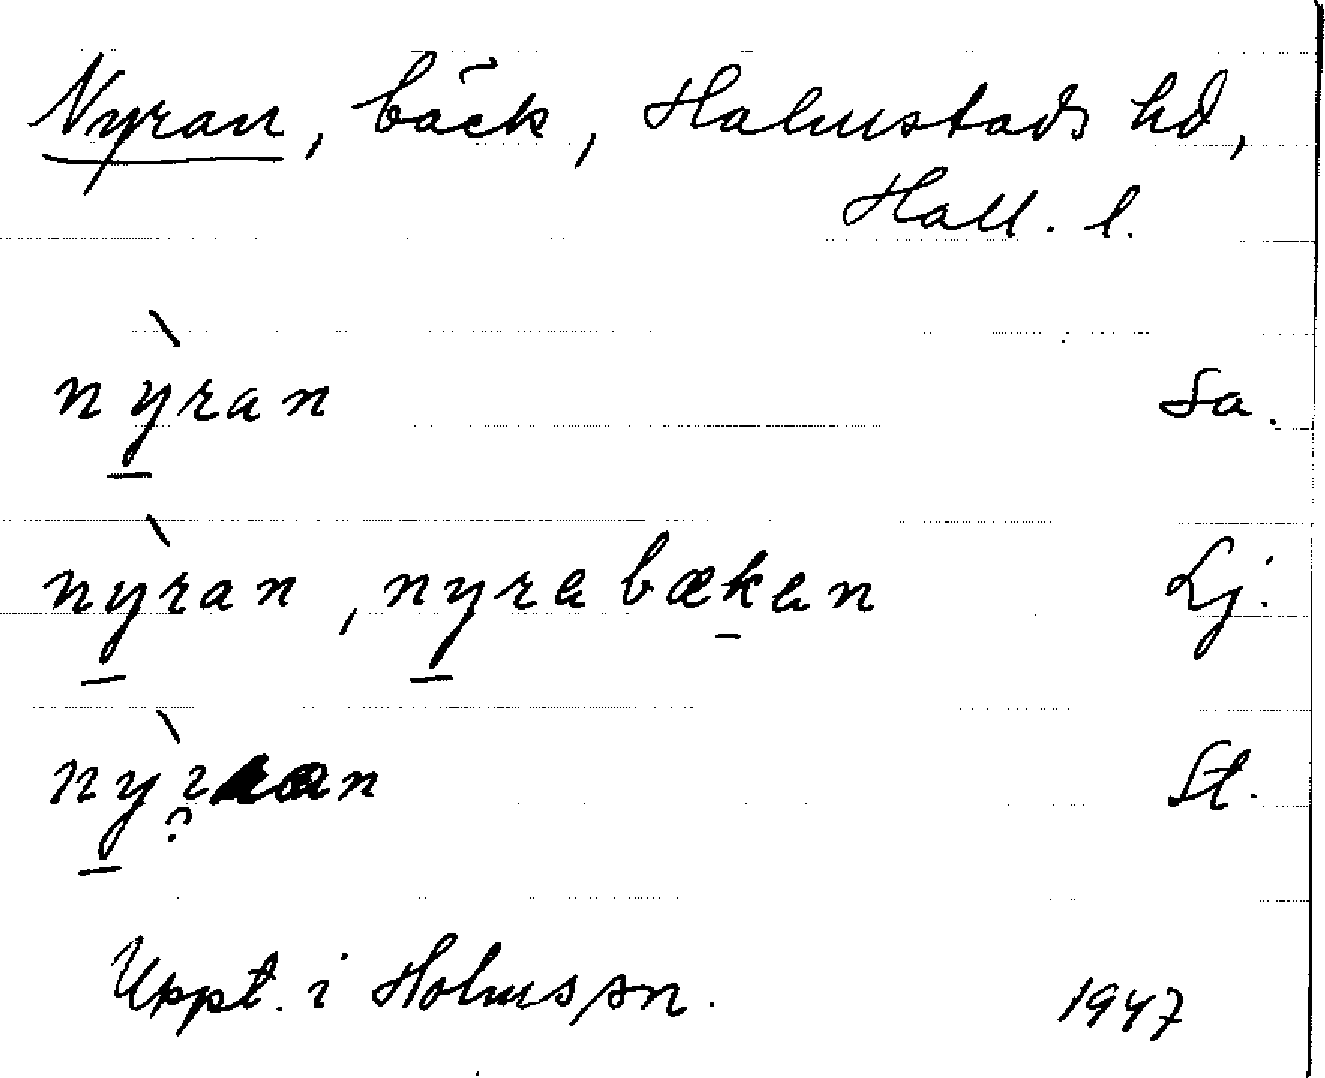 Nyran, bäck, Halmstads hd,
Hall. l.
nỳran Sa.
nỳran, nyrabækan Lj.
nỳran St.
?
Uppt. i Holms sn. 1947